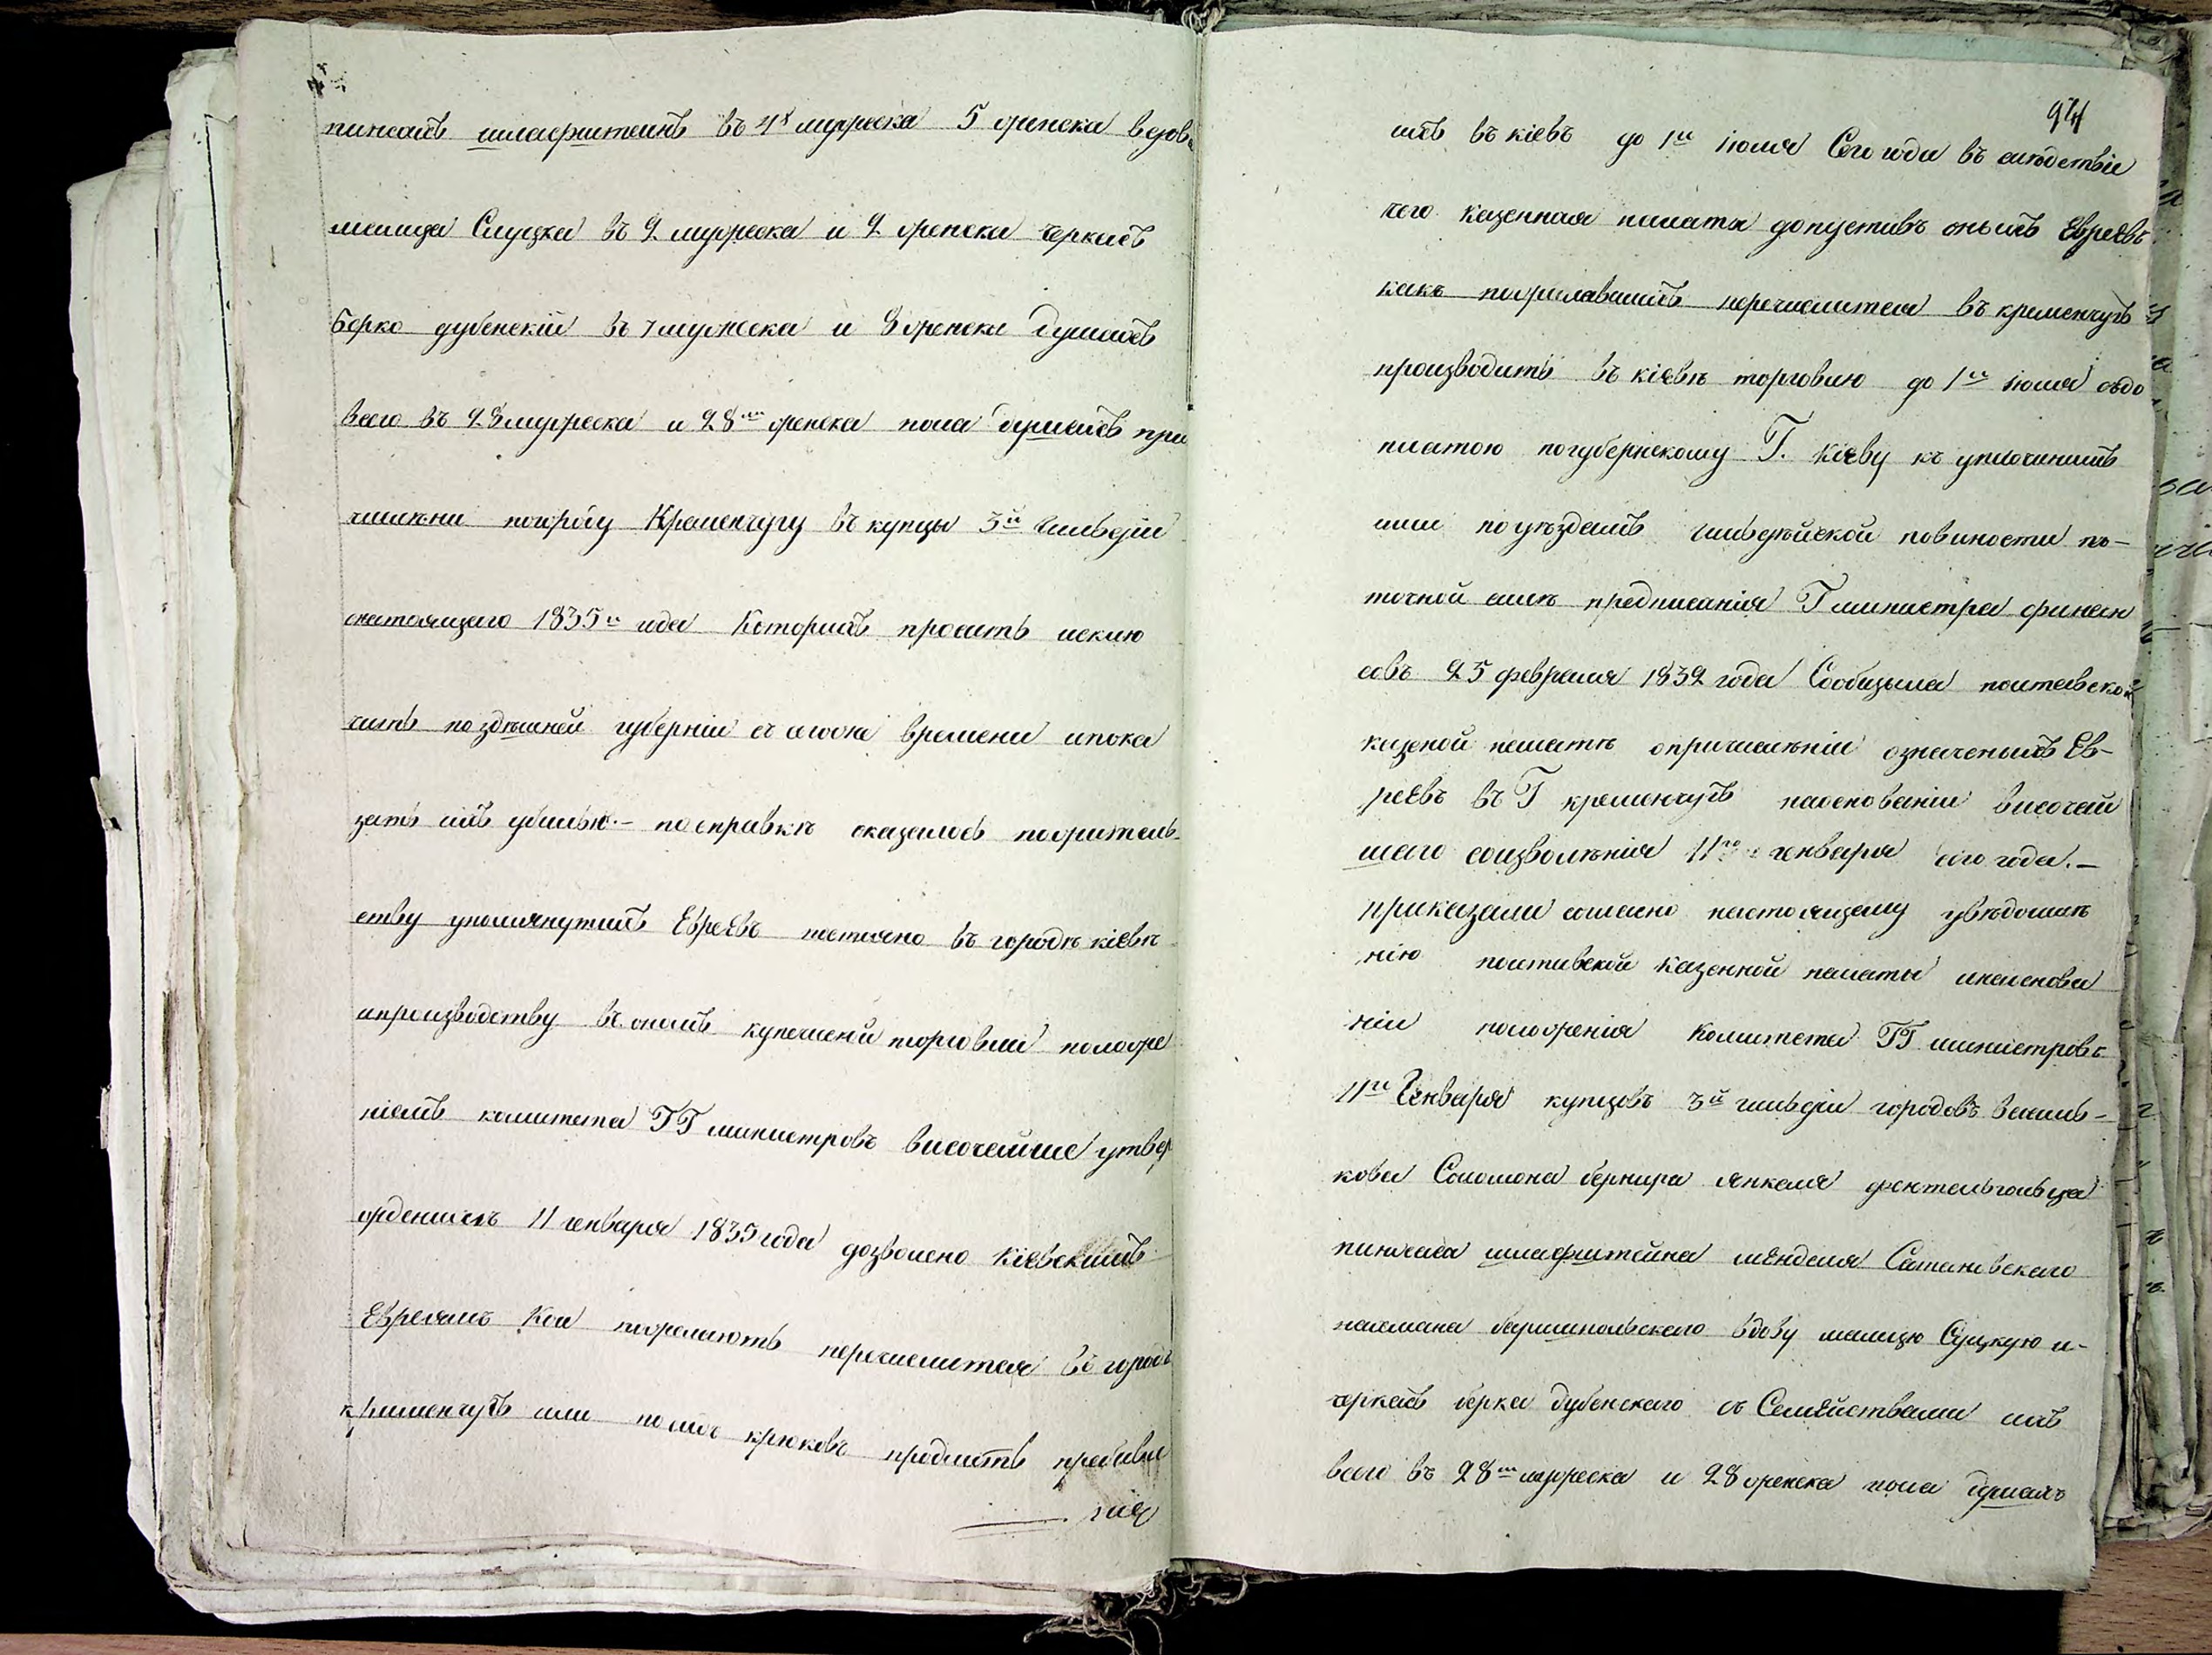 пинхасъ шлаерштеинъ въ 4х мужеска 5 женска вдова
малица Слуцка въ 2 мужеска и 2 женска черкасъ
Борко дубенскiй въ 7 мужеска и 8 женска душахъ
всего въ 28 мужеска и 28ми женска пола душахъ при
числѣни погороду Кременчугу въ купцы 3й гильдiи
снастоящаго 1835го года Которихъ проситъ исклю
чить по здѣшней губернiи съ того времени ипока
зать ихъ убилью.- посправкѣ оказалось пожитель-
ству упомянутихъ Евреевъ въ городѣ кiевѣ
ипроизводству въ ономъ купеческой торговли положе
нiемъ комитета ГГ министровъ височайше утвер
жденимъ 11 генваря 1835 года дозволено Кiевскимъ
Евреямъ Кои пожелаютъ перечислится въ городъ
кременчугъ или посадъ крюковъ продлить пребива
нiя
94
ихъ въ кiевѣ до 1го iюля Сего года въ слюдствiе
чего казенная палата допустивъ онихъ Евреевъ
какъ пожелавшихъ перечислится въ кременчугъ
производить въ кiевѣ торговлю до 1го iюля съдо
платою погубернскому Г. Кiеву къ уплочинимъ
ими по уѣздамъ гильдѣйской повиности
точной силѣ предписанiя Г министра финан
совъ 25 февраля 1832 года Сообщила полтавской
казеной палатѣ опричислѣнiи означенихъ Ев-
реевъ въ Г кременчугъ наоснованiи височай
шаго соизволѣнiя 11го генваря сего года.-
приказали согласно настоящему увѣдомлѣ
нiю полтавской казенной палаты инаоснова
нiи положенiя Комитета ГГ министровъ
11го Генваря купцовъ 3й гильдiи городовъ василь-
кова Соломона бернира янкеля
пинхаса шлаерштейна мЕнделя Сатановскаго
нахмана баришпольскаго вдову малицю Слуцкую и-
черкасъ берка дубенскаго съ СемЕйствами ихъ
всего въ 28ми мужеска и 28 женска пола душахъ